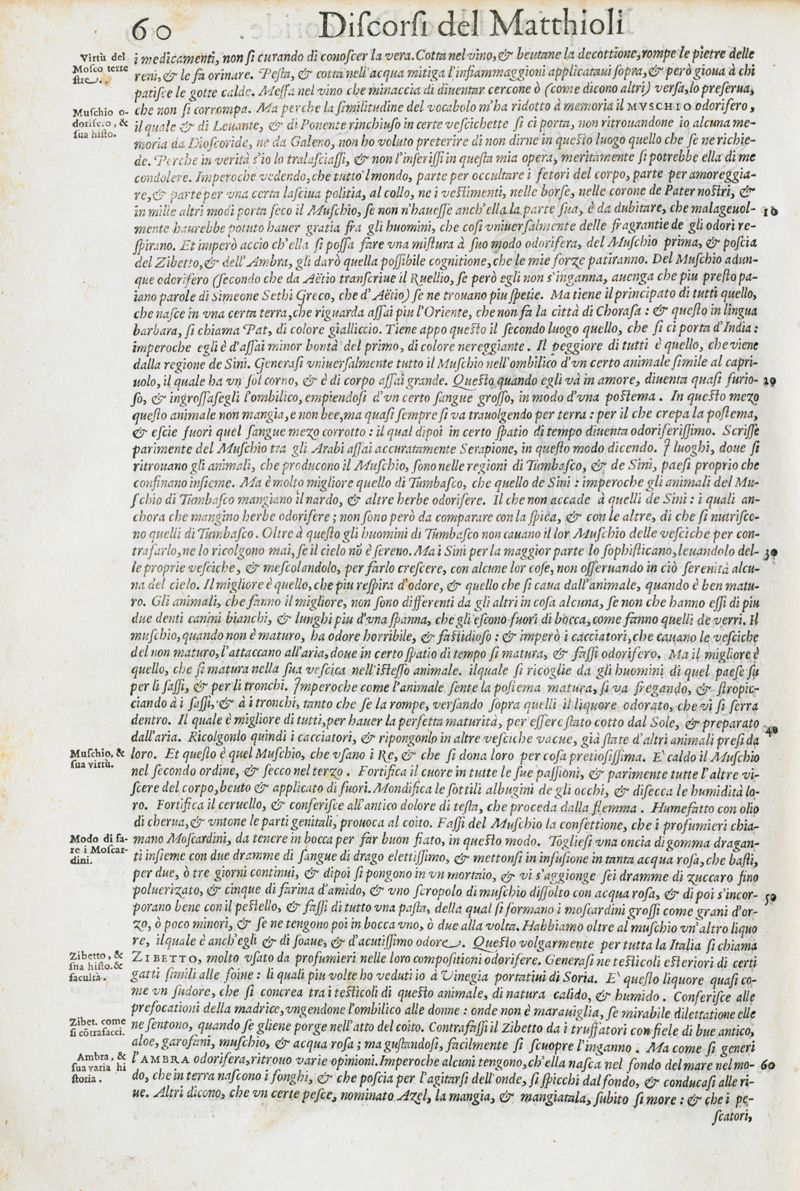 60 Diſcorſi del Matthioli
Virtù del
Moſco terre
ſtre.
i medicamenti, non ſi curando di conoſcer la vera. Cotta nel vino, & beutane la decottione, rompe le pietre delle
reni, & le fa orinare. Peſta, & cotta nell'acqua mitiga l'infiammaggioni applicataui ſopra, & però gioua à chi
patiſce le gotte calde. Meſſa nel vino che minaccia di diuentar cercone ò (come dicono altri) verſa, lo preſerua,
Muſchio o-
dorife.o, &
ſua hiſto.
che non ſi corrompa. Ma perche la ſimilitudine del vocabolo m'ha ridotto à memoria il MVSCHIO odorifero,
il quale & di Leuante, & di Ponente rinchiuſo in certe veſcichette ſi ci porta, non ritrouandone io alcuna me-
moria da Dioſcoride, ne da Galeno, non ho voluto preterire di non dirne in queſto luogo quello che ſe ne richie-
de. Perche in verità s'io lo tralaſciaſſi, & non l'inſeriſſi in queſta mia opera, meritamente ſi potrebbe ella di me
condolere. Imperoche vedendo, che tutto'l mondo, parte per occultare i fetori del corpo, parte per amoreggia-
re, & parte per vna certa laſciua politia, al collo, ne i veſtimenti, nelle borſe, nelle corone de Pater noſtri, &
in mille altri modi porta ſeco il Muſchio, ſe non n'haueſſe anch'ella la parte ſua, è da dubitare, che malageuol- 10
mente haurebbe potuto hauer gratia fra gli huomini, che coſi vniuerſalmente delle fragrantie de gli odori re-
ſpirano. Et imperò accio ch'ella ſi poſſa fare vna miſtura à ſuo modo odorifera, del Muſchio prima, & poſcia
del Zibetto, & dell'Ambra, gli darò quella poſſibile cognitione, che le mie forze patiranno. Del Muſchio adun-
que odorifero (ſecondo che da Aëtio tranſcriue il Ruellio, ſe però egli non s'inganna, auenga che piu preſto pa-
iano parole di Simeone Sethi Greco, che d'Aëtio) ſe ne trouano piu ſpetie. Ma tiene il principato di tutti quello,
che naſce in vna certa terra, che riguarda aſſai piu l'Oriente, che non fa la città di Choraſa: & queſto in lingua
barbara, ſi chiama Pat, di colore gialliccio. Tiene appo queſto il ſecondo luogo quello, che ſi ci porta d'India:
imperoche egli è d'aſſai minor bontà del primo, di colore nereggiante. Il peggiore di tutti è quello, che viene
dalla regione de Sini. Generaſi vniuerſalmente tutto il Muſchio nell'ombilico d'vn certo animale ſimile al capri-
uolo, il quale ha vn ſol corno, & è di corpo aſſai grande. Queſto quando egli và in amore, diuenta quaſi furio- 20
ſo, & ingroſſaſegli l'ombilico, empiendoſi d'vn certo ſangue groſſo, in modo d'vna poſtema. In queſto mezo
queſto animale non mangia, e non bee, ma quaſi ſempre ſi va trauolgendo per terra: per il che crepa la poſtema,
& eſcie fuori quel ſangue mezo corrotto: il qual dipoi in certo ſpatio di tempo diuenta odoriferiſſimo. Scriſſe
parimente del Muſchio tra gli Arabi aſſai accuratamente Serapione, in queſto modo dicendo. I luoghi, doue ſi
ritrouano gli animali, che producono il Muſchio, ſono nelle regioni di Tumbaſco, & de Sini, paeſi proprio che
confinano inſieme. Ma è molto migliore quello di Tumbaſco, che quello de Sini: imperoche gli animali del Mu-
ſchio di Tumbaſco mangiano il nardo, & altre herbe odorifere. Il che non accade à quelli de Sini: i quali an-
chora che mangino herbe odorifere; non ſono però da comparare con la ſpica, & con le altre, di che ſi nutriſco-
no quelli di Tumbaſco. Oltre à queſto gli huomini di Tumbaſco non cauano il lor Muſchio delle veſciche per con-
trafarlo, ne lo ricolgono mai, ſe il cielo nõ è ſereno. Ma i Sini per la maggior parte lo ſophiſticano, leuandolo del- 30
le proprie veſciche, & meſcolandolo, per farlo creſcere, con alcune lor coſe, non oſſeruando in ciò ſerenità alcu-
na del cielo. Il migliore è quello, che piu reſpira d'odore, & quello che ſi caua dall'animale, quando è ben matu-
ro. Gli animali, che fanno il migliore, non ſono differenti da gli altri in coſa alcuna, ſe non che hanno eſſi di piu
due denti canini bianchi, & lunghi piu d'vna ſpanna, che gli eſcono fuori di bocca, come fanno quelli de verri. Il
muſchio, quando non è maturo, ha odore horribile, & faſtidioſo: & imperò i cacciatori, che cauano le veſciche
del non maturo, l'attaccano all'aria, doue in certo ſpatio di tempo ſi matura, & faſſi odorifero. Ma il migliore è
quello, che ſi matura nella ſua veſcica nell'iſteſſo animale. ilquale ſi ricoglie da gli huomini di quel paeſe ſu
per li ſaſſi, & per li tronchi. Imperoche come l'animale ſente la poſtema matura, ſi va fregando, & ſtropic-
ciando à i ſaſſi, & à i tronchi, tanto che ſe la rompe, verſando ſopra quelli il liquore odorato, che vi ſi ſerra
dentro. Il quale è migliore di tutti, per hauer la perfetta maturità, per eſſere ſtato cotto dal Sole, & preparato 40
dall'aria. Ricolgonlo quindi i cacciatori, & ripongonlo in altre veſciche vacue, già ſtate d'altri animali preſi da
Muſchio, &
ſua virtù.
loro. Et queſto è quel Muſchio, che vſano i Re, & che ſi dona loro per coſa pretioſiſſima. E' caldo il Muſchio
nel ſecondo ordine, & ſecco nel terzo. Fortifica il cuore in tutte le ſue paſſioni, & parimente tutte l'altre vi-
ſcere del corpo, beuto & applicato di fuori. Mondifica le ſottili albugini de gli occhi, & diſecca le humidità lo-
ro. Fortifica il ceruello, & conferiſce all'antico dolore di teſta, che proceda dalla flemma. Humefatto con olio
di cherua, & vntone le parti genitali, prouoca al coito. Faſſi del Muſchio la confettione, che i profumieri chia-
Modo di fa-
re i Moſcar-
dini.
mano Moſcardini, da tenere in bocca per far buon fiato, in queſto modo. Toglieſi vna oncia di gomma dragan-
ti inſieme con due dramme di ſangue di drago elettiſſimo, & mettonſi in infuſione in tanta acqua roſa, che baſti,
per due, ò tre giorni continui, & dipoi ſi pongono in vn mortaio, & vi s'aggionge ſei dramme di zuccaro fino
poluerizato, & cinque di farina d'amido, & vno ſcropolo di muſchio diſſolto con acqua roſa, & di poi s'incor- 50
porano bene con il peſtello, & faſſi di tutto vna paſta, della qual ſi formano i moſcardini groſſi come grani d'or-
zo, ò poco minori, & ſe ne tengono poi in bocca vno, ò due alla volta. Habbiamo oltre al muſchio vn'altro liquo
re, ilquale è anch'egli & di ſoaue, & d'acutiſſimo odore. Queſto volgarmente per tutta la Italia ſi chiama
Zibetto, &
ſua hiſto. &
facultà.
ZIBETTO, molto vſato da profumieri nelle loro compoſitioni odorifere. Generaſi ne teſticoli eſteriori di certi
gatti ſimili alle foine: li quali piu volte ho veduti io à Vinegia portatini di Soria. E' queſto liquore quaſi co-
me vn ſudore, che ſi concrea tra i teſticoli di queſto animale, di natura calido, & humido. Conferiſce alle
prefocationi della madrice, vngendone l'ombilico alle donne: onde non è marauiglia, ſe mirabile dilettatione elle
Zibet. come
ſi cõtrafacci.
ne ſentono, quando ſe gliene porge nell'atto del coito. Contrafaſſi il Zibetto da i truffatori con fiele di bue antico,
aloe, garofani, muſchio, & acqua roſa; ma guſtandoſi, facilmente ſi ſcuopre l'inganno. Ma come ſi generi
Ambra, &
ſua varia hi
ſtoria.
l'AMBRA odorifera, ritrouo varie opinioni. Imperoche alcuni tengono, ch'ella naſca nel fondo del mare nel mo- 60
do, che in terra naſcono i fonghi, & che poſcia per l'agitarſi dell'onde, ſi ſpicchi dal fondo, & conducaſi alle ri-
ue. Altri dicono, che vn certo peſce, nominato Azel, la mangia, & mangiatala, ſubito ſi more: & che i pe-
ſcatori,